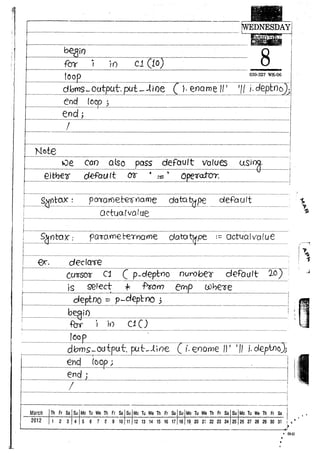 WEDNESDAY
8
begin
for i in c1 (10)
loop
dbms_output.put_line ( i.ename ||' '|| i.deptno);
end loop ;
end ;
/
Note
We can also pass default values using
either default or " := " operator.
Syntax : parametername datatype default
actualvalue
Syntax : parametername datatype := actualvalue
MAR
APR
ex. declare
cursor c1 ( p-deptno number default 20)
is select * from emp where
deptno = p-deptno ;
begin
for i in c1()
loop
dbms_output.put_line ( i.ename ||' '|| i.deptno);
end loop ;
end ;
/
March Th Fr Sa Su Mo Tu We Th Fr Sa Su Mo Tu We Th Fr Sa Su Mo Tu We Th Fr Sa Su Mo Tu We Th Fr Sa
2012 1 2 3 4 5 6 7 8 9 10 11 12 13 14 15 16 17 18 19 20 21 22 23 24 25 26 27 28 29 30 31